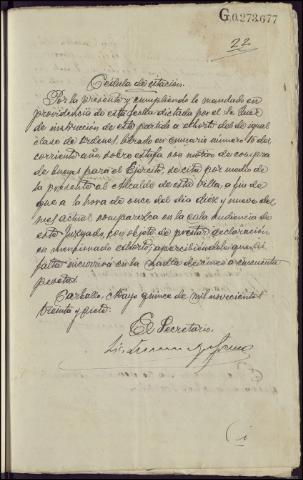 G.0.273.677
22
Cédula de citación.
Por la presente y cumpliendo lo mandado en
providencia de esta fecha dictada por el Sr. Juez
de instrucción de este partido a exhorto del de igual
clase de Ordenes librado en sumario número 16 del
corriente año sobre estafa con motivo de compra
de bueyes para el Ejército, se cita por medio de
la presente al Alcalde de esta villa, a fin de
que a la hora de once del día diez y nueve del
mes actual comparezca en la sala audiencia de
este Juzgado, con objeto de prestar declaración
en mencionado exhorto, apercibiéndole que si
falta incurrirá en la multa de cinco a cincuenta
pesetas.
Carballo, Mayo quince de mil novecientos
treinta y siete.
El Secretario.